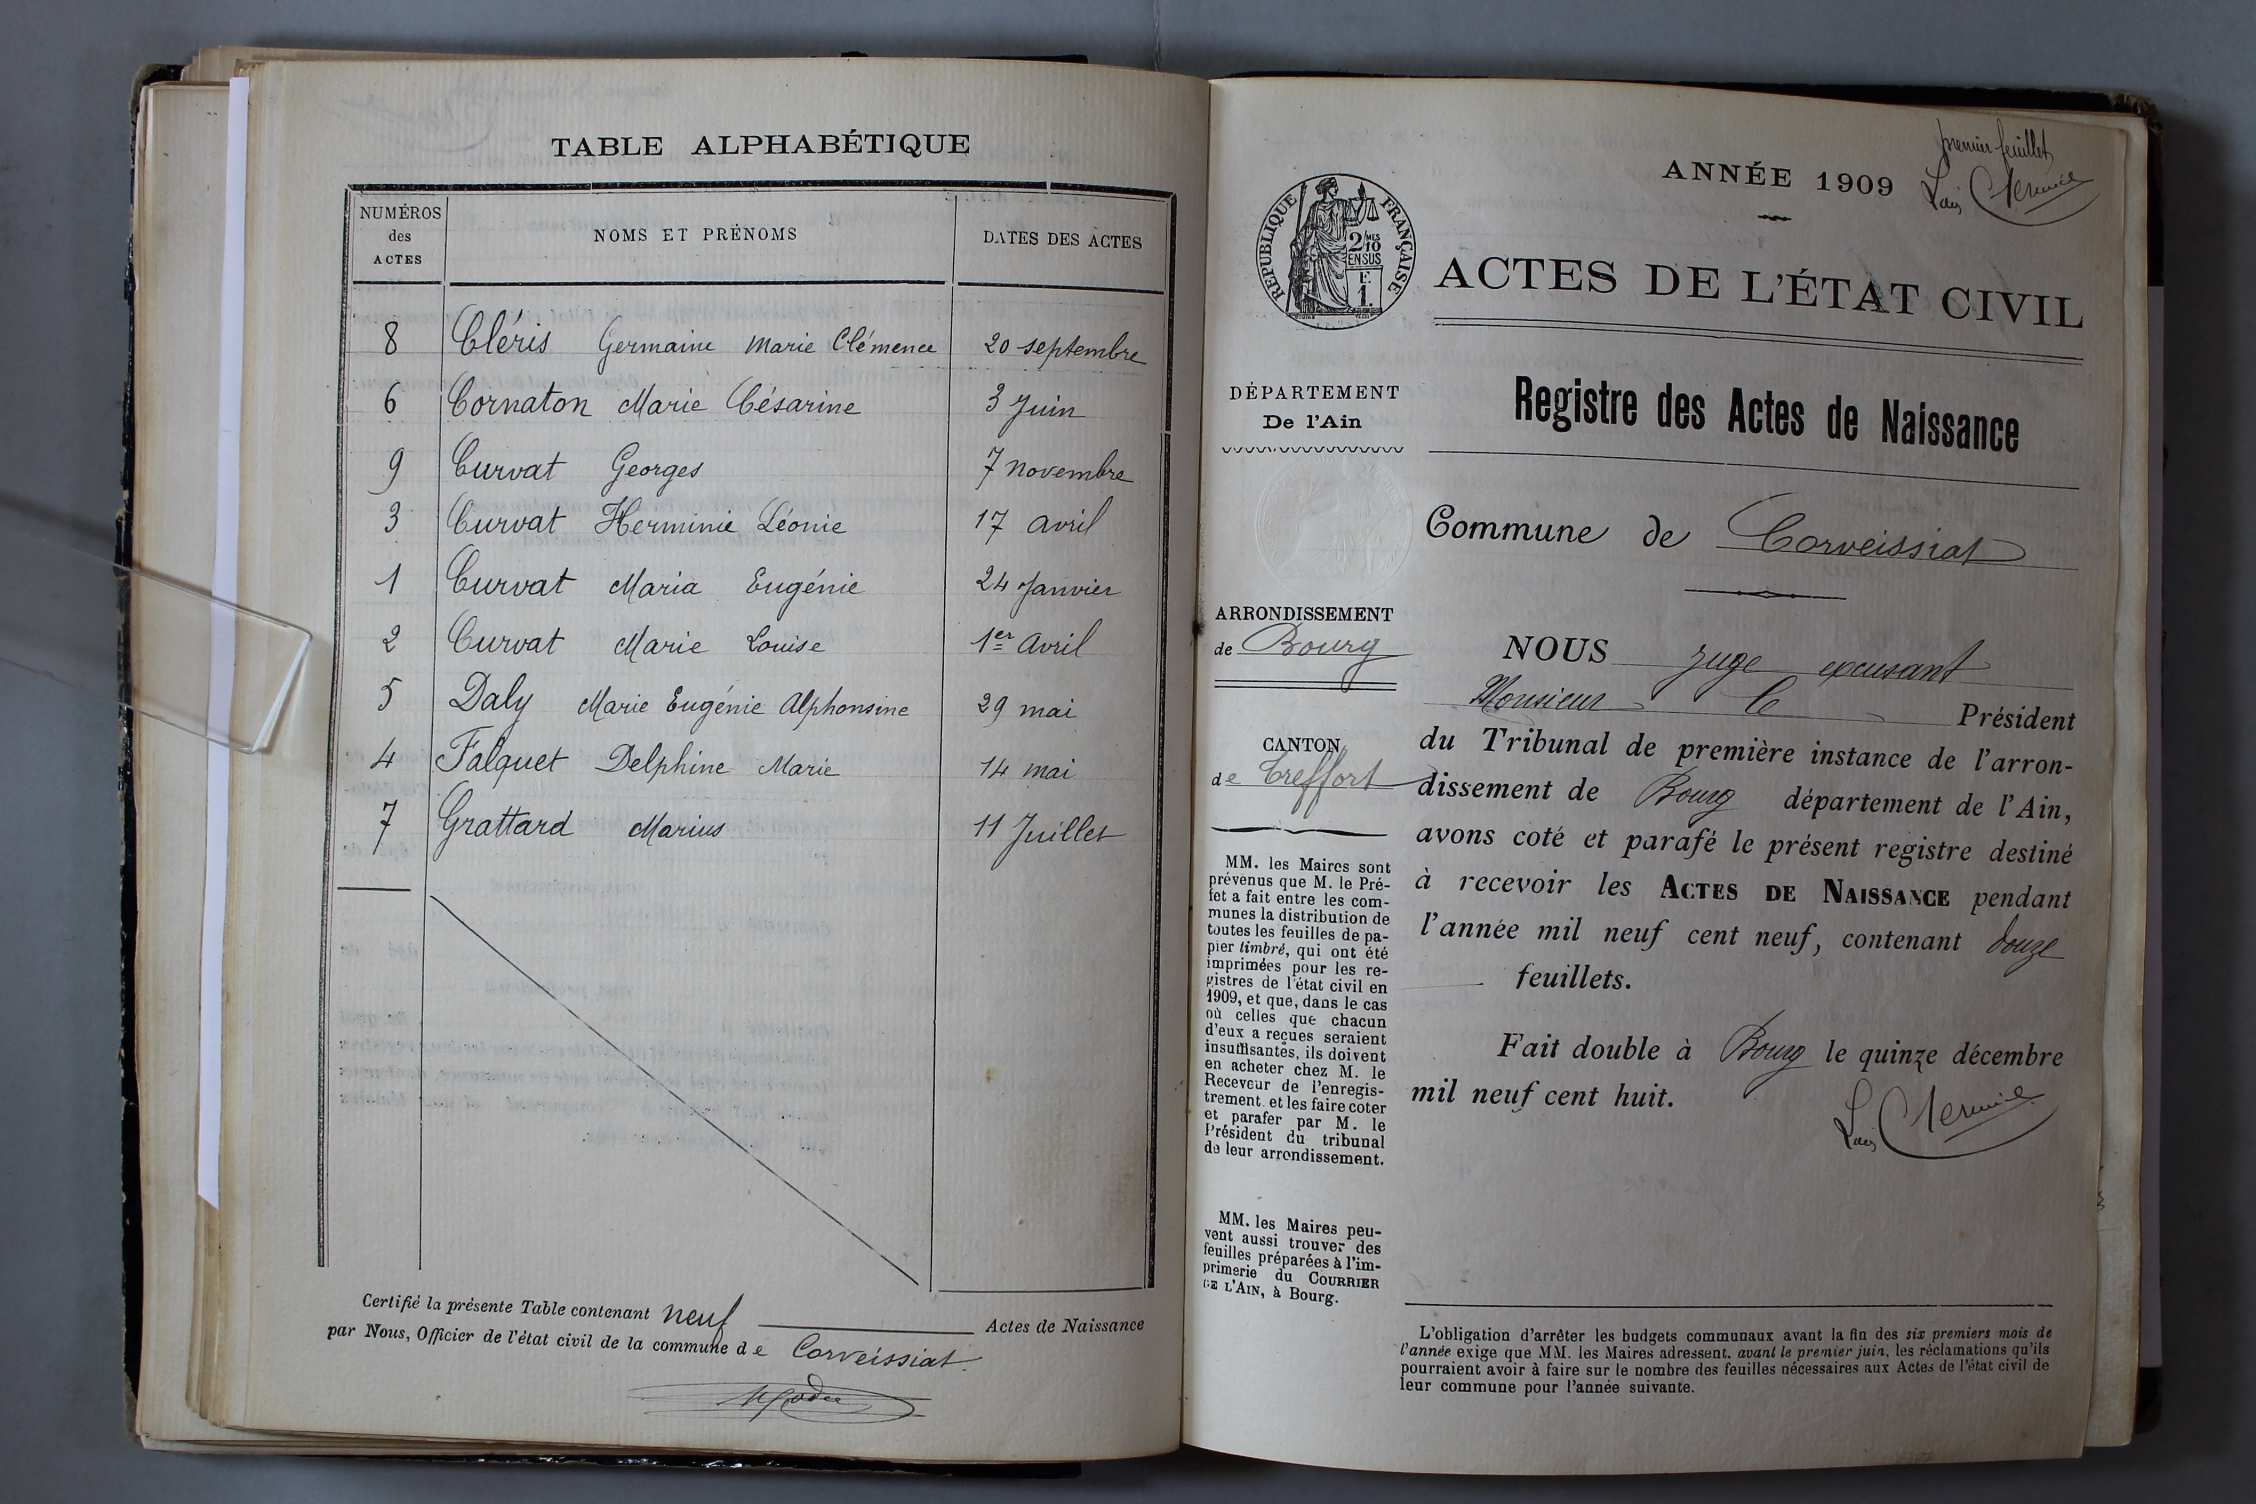 TABLE ALPHABÉTIQUE
NUMÉROS des ACTES
NOMS ET PRÉNOMS
DATES DES ACTES
8 Cléris Germaine Marie Clémence 20 septembre
6 Cornaton Marie Césarine 3 Juin
9 Curvat Georges 7 novembre
3 Curvat Herminie Léonie 17 avril
1 Curvat Maria Eugénie 24 Janvier
2 Curvat Marie Louise 1er avril
5 Daly Marie Eugénie Alphonsine 29 mai
4 Falquet Delphine Marie 14 mai
7 Grattard Marius 11 Juillet
Certifié la présente Table contenant neuf Actes de Naissance
par Nous, Officier de l'état civil de la commune de Corveissiat
premier feuillet
ANNÉE 1909
RÉPUBLIQUE FRANÇAISE
2/10 MES
EN SUS
F.
1.
ACTES DE L'ÉTAT CIVIL
DÉPARTEMENT
De l'Ain
ARRONDISSEMENT
de Bourg
CANTON
de Treffort
MM. les Maires sont
prévenus que M. le Pré-
fet a fait entre les com-
munes la distribution de
toutes les feuilles de pa-
pier timbré, qui ont été
imprimées pour les re-
gistres de l'état civil en
1909, et que, dans le cas
où celles que chacun
d'eux a reçues seraient
insuffisantes, ils doivent
en acheter chez M. le
Receveur de l'enregis-
trement et les faire coter
et parafer par M. le
Président du tribunal
de leur arrondissement.
MM. les Maires peu-
vent aussi trouver des
feuilles préparées à l'im-
primerie du COURRIER
DE L'AIN, à Bourg.
Registre des Actes de Naissance
Commune de Corveissiat
NOUS juge excusant
Monsieur le Président
du Tribunal de première instance de l'arron-
dissement de Bourg département de l'Ain,
avons coté et parafé le présent registre destiné
à recevoir les ACTES DE NAISSANCE pendant
l'année mil neuf cent neuf, contenant douze
feuillets.
Fait double à Bourg le quinze décembre
mil neuf cent huit.
L'obligation d'arrêter les budgets communaux avant la fin des six premiers mois de
l'année exige que MM. les Maires adressent, avant le premier juin, les réclamations qu'ils
pourraient avoir à faire sur le nombre des feuilles nécessaires aux Actes de l'état civil de
leur commune pour l'année suivante.